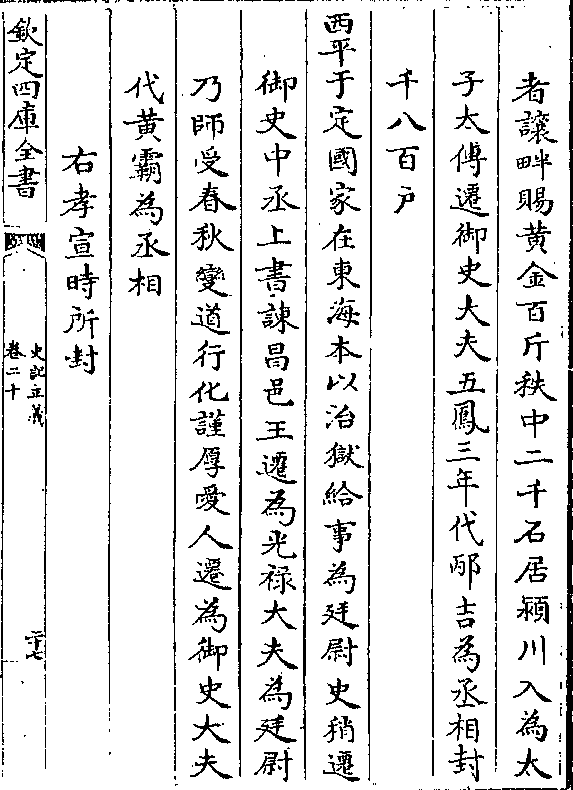 者讓畔賜黄金百斤秩中二千石居潁川入為太
子太傅遷御史大夫五鳳三年代邴吉為丞相封
千八百户
西平于定國家在東海本以治獄給事為廷尉史稍遷
御史中丞上書諌昌邑王遷為光禄大夫為廷尉
乃師受春秋變道行化謹厚愛人遷為御史大夫
代黄霸為丞相
右孝宣時所封
欽定四庫全書
史記正義
卷二十
二十七